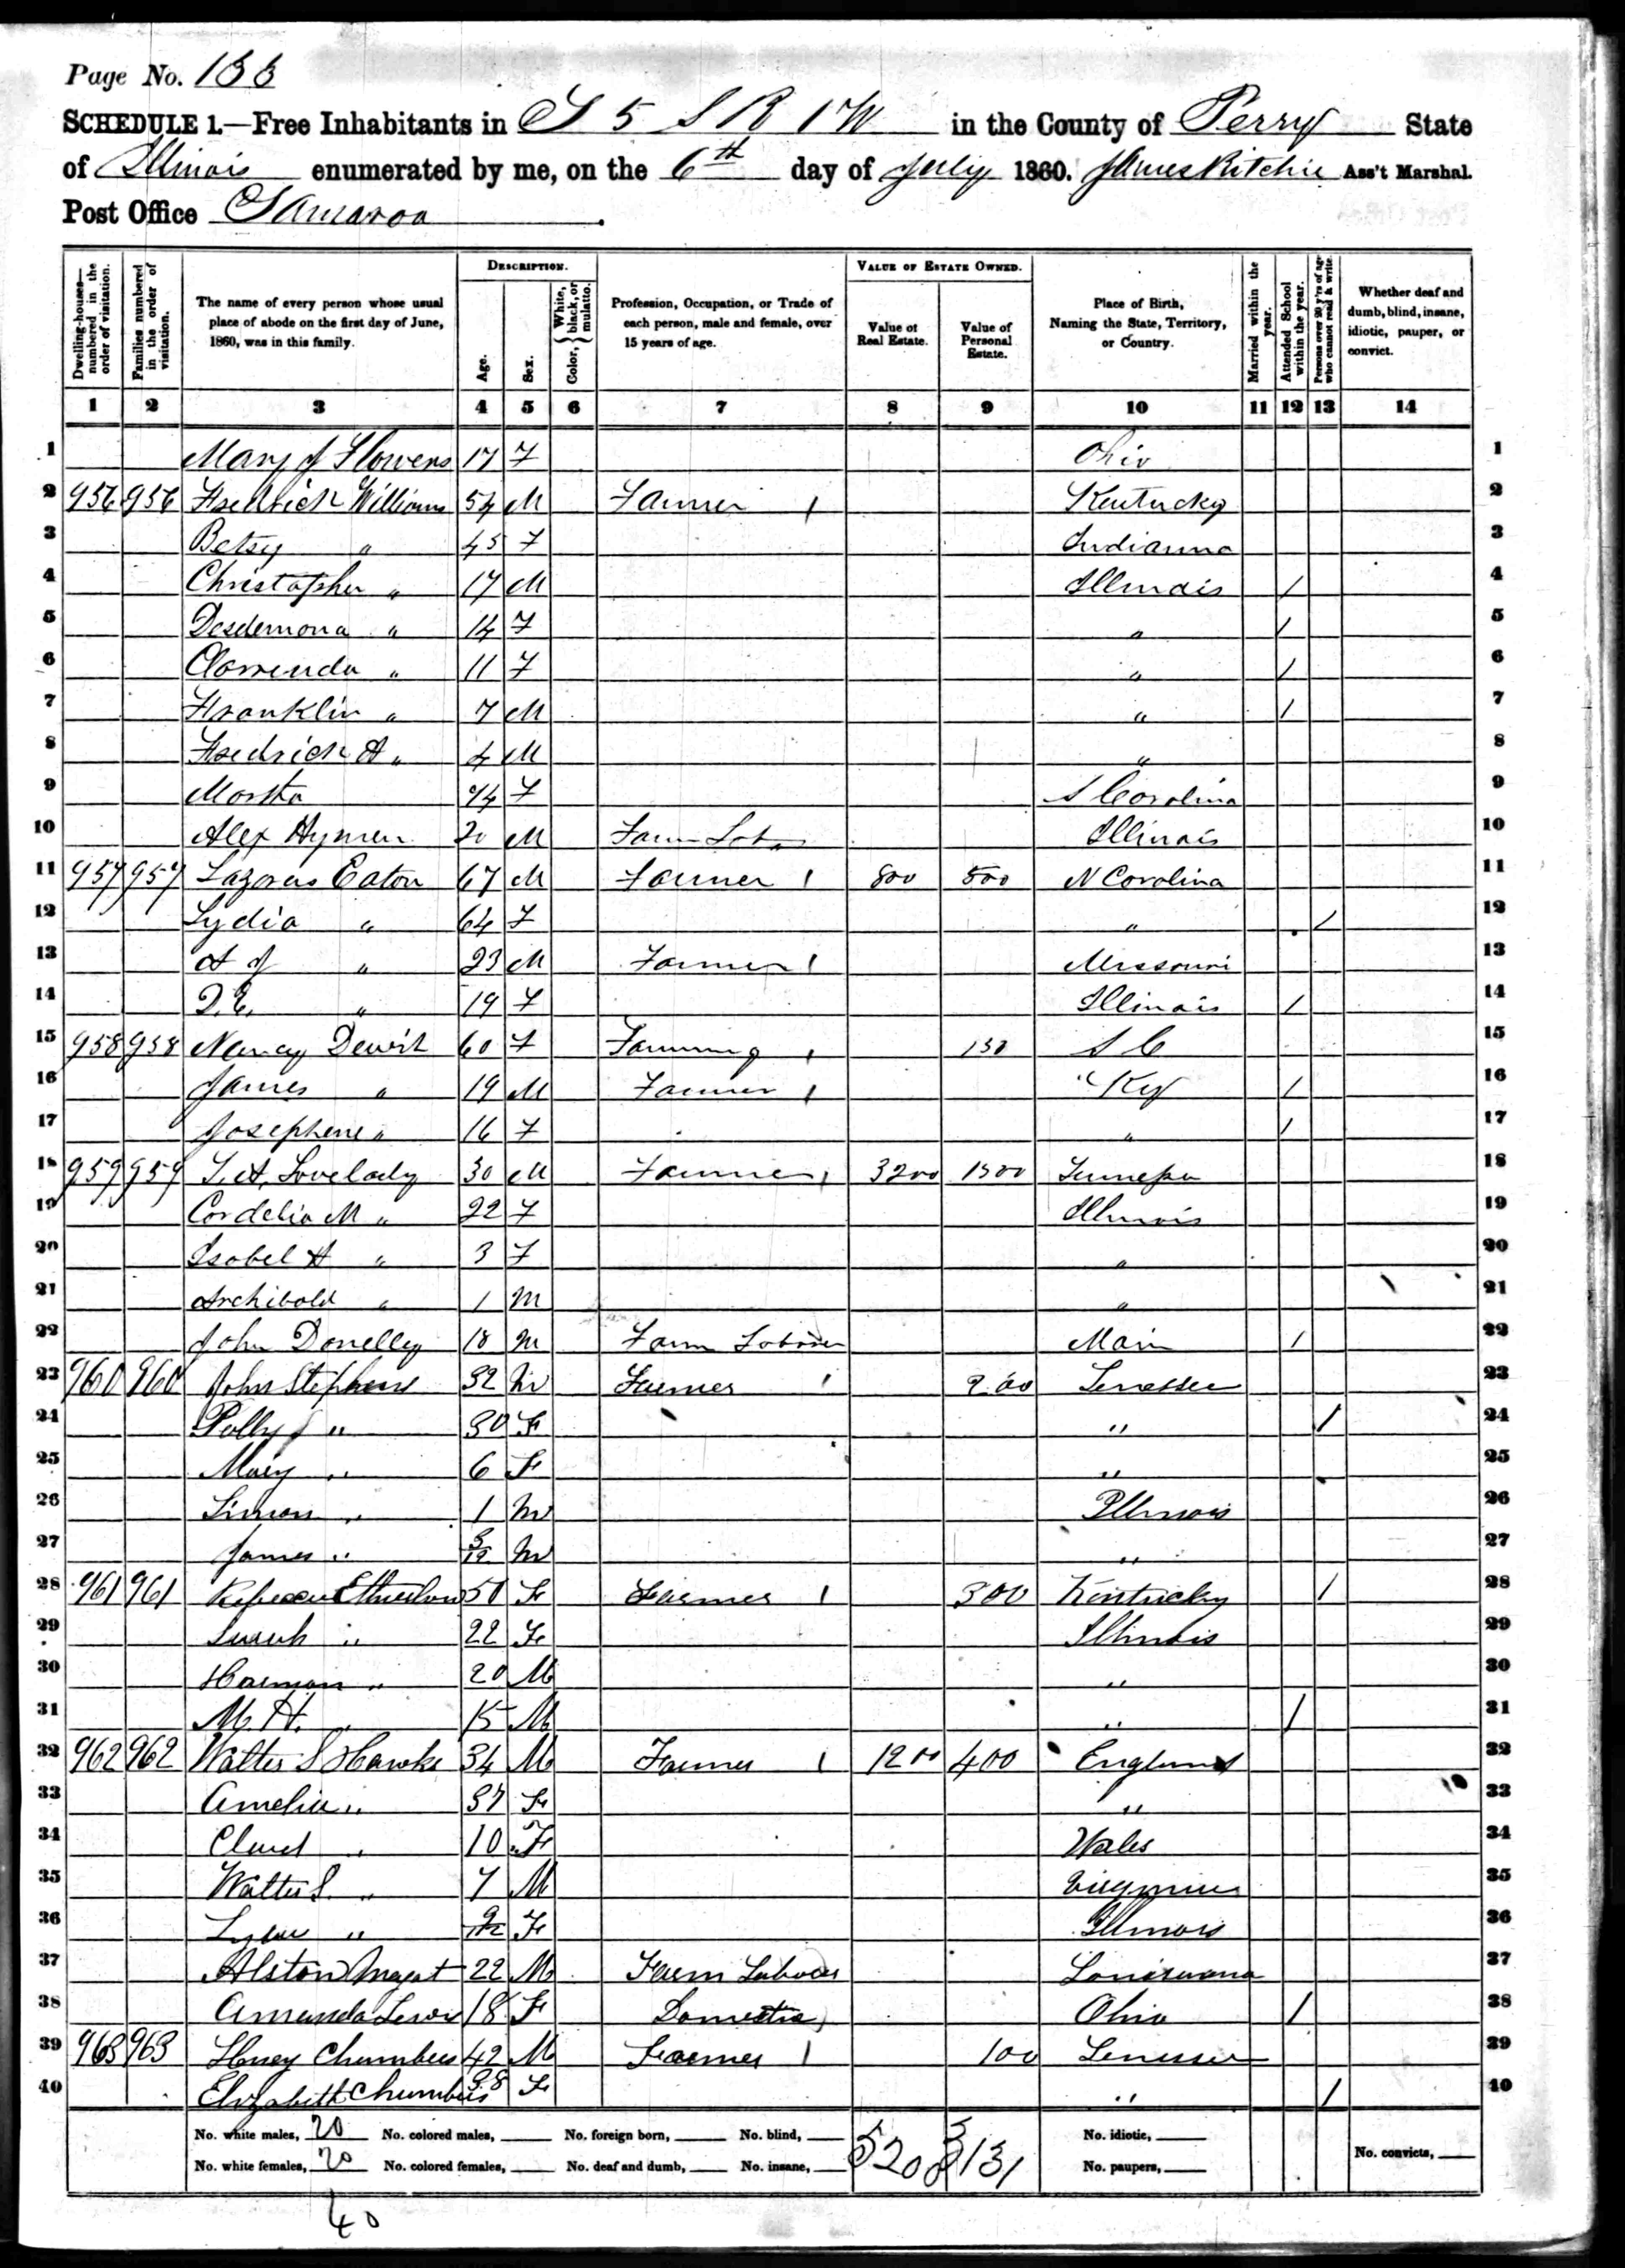 Page No. 133
SCHEDULE 1.—Free Inhabitants in T 5 S R 1 W in the County of Perry State
of Illinois enumerated by me, on the 6th day of July 1860. James Ritchie Ass't Marshal.
Post Office Tamaroa.
Dwelling-houses—numbered in the order of visitation.
Families numbered in the order of visitation.
The name of every person whose usual place of abode on the first day of June, 1860, was in this family.
DESCRIPTION.
Age.
Sex.
Color, } White, black, or mulatto.
Profession, Occupation, or Trade of each person, male and female, over 15 years of age.
VALUE OF ESTATE OWNED.
Value of Real Estate.
Value of Personal Estate.
Place of Birth, Naming the State, Territory, or Country.
Married within the year.
Attended School within the year.
Persons over 20 y'rs of age who cannot read & write.
Whether deaf and dumb, blind, insane, idiotic, pauper, or convict.
1 2 3 4 5 6 7 8 9 10 11 12 13 14
1 Mary J Flowers 17 F Ohio 1
2 956 956 Fredrick Williams 54 M Farmer 1 Kentucky 2
3 Betsy " 45 F Indianna 3
4 Christopher " 17 M Illinois / 4
5 Desdemona " 14 F " / 5
6 Clarrenda " 11 F " / 6
7 Franklin " 7 M " / 7
8 Fredrick A " 4 M " 8
9 Martha 74 F S Carolina 9
10 Alex Hymen 20 M Farm Lab Illinois 10
11 957 957 Lazarus Eaton 67 M Farmer 1 800 500 N Carolina 11
12 Lydia " 64 F " / 12
13 A J " 23 M Farmer 1 Missouri 13
14 " 19 F Illinois / 14
15 958 958 Nancy Dewit 60 F Farming 1 131 S C 15
16 James " 19 M Farmer 1 Ky / 16
17 Josephene " 16 F " / 17
18 959 959 T. A. Lovelady 30 M Farmer 1 3200 1500 Tennessee 18
19 Cordelia M " 22 F Illinois 19
20 Isabel A " 3 F " 20
21 Archibald " 1 M " 21
22 John Donelley 18 M Farm Laborer Main / 22
23 960 960 John Stephens 32 M Farmer 1 200 Tenessee 23
24 Polly J " 30 F " / 24
25 Mary " 6 F " 25
26 Simon " 1 M Illinois 26
27 James " M " 27
28 961 961 Rebecca Etherton 50 F Farmer 1 300 Kentucky / 28
29 Sarah " 22 F Illinois 29
30 Harmon " 20 M " 30
31 M. H. " 15 M " / 31
32 962 962 Walter S Hawke 34 M Farmer 1 1200 400 England 32
33 Amelia " 37 F " 33
34 " 10 F Wales 34
35 Walter S. " 7 M Virginia 35
36 " 9/12 F Illinois 36
37 Alston 22 M Farm Labour Louisiana 37
38 Amanda Lewis 18 F Domestic Ohio / 38
39 963 963 Henry Chambers 42 M Farmer 1 100 Tenessee 39
40 Elizabeth Chambers 38 F " / 40
No. white males, 20 No. colored males, No. foreign born, No. blind, 5200 3131 No. idiotic,
No. white females, 20 No. colored females, No. deaf and dumb, No. insane, No. paupers, No. convicts,
40